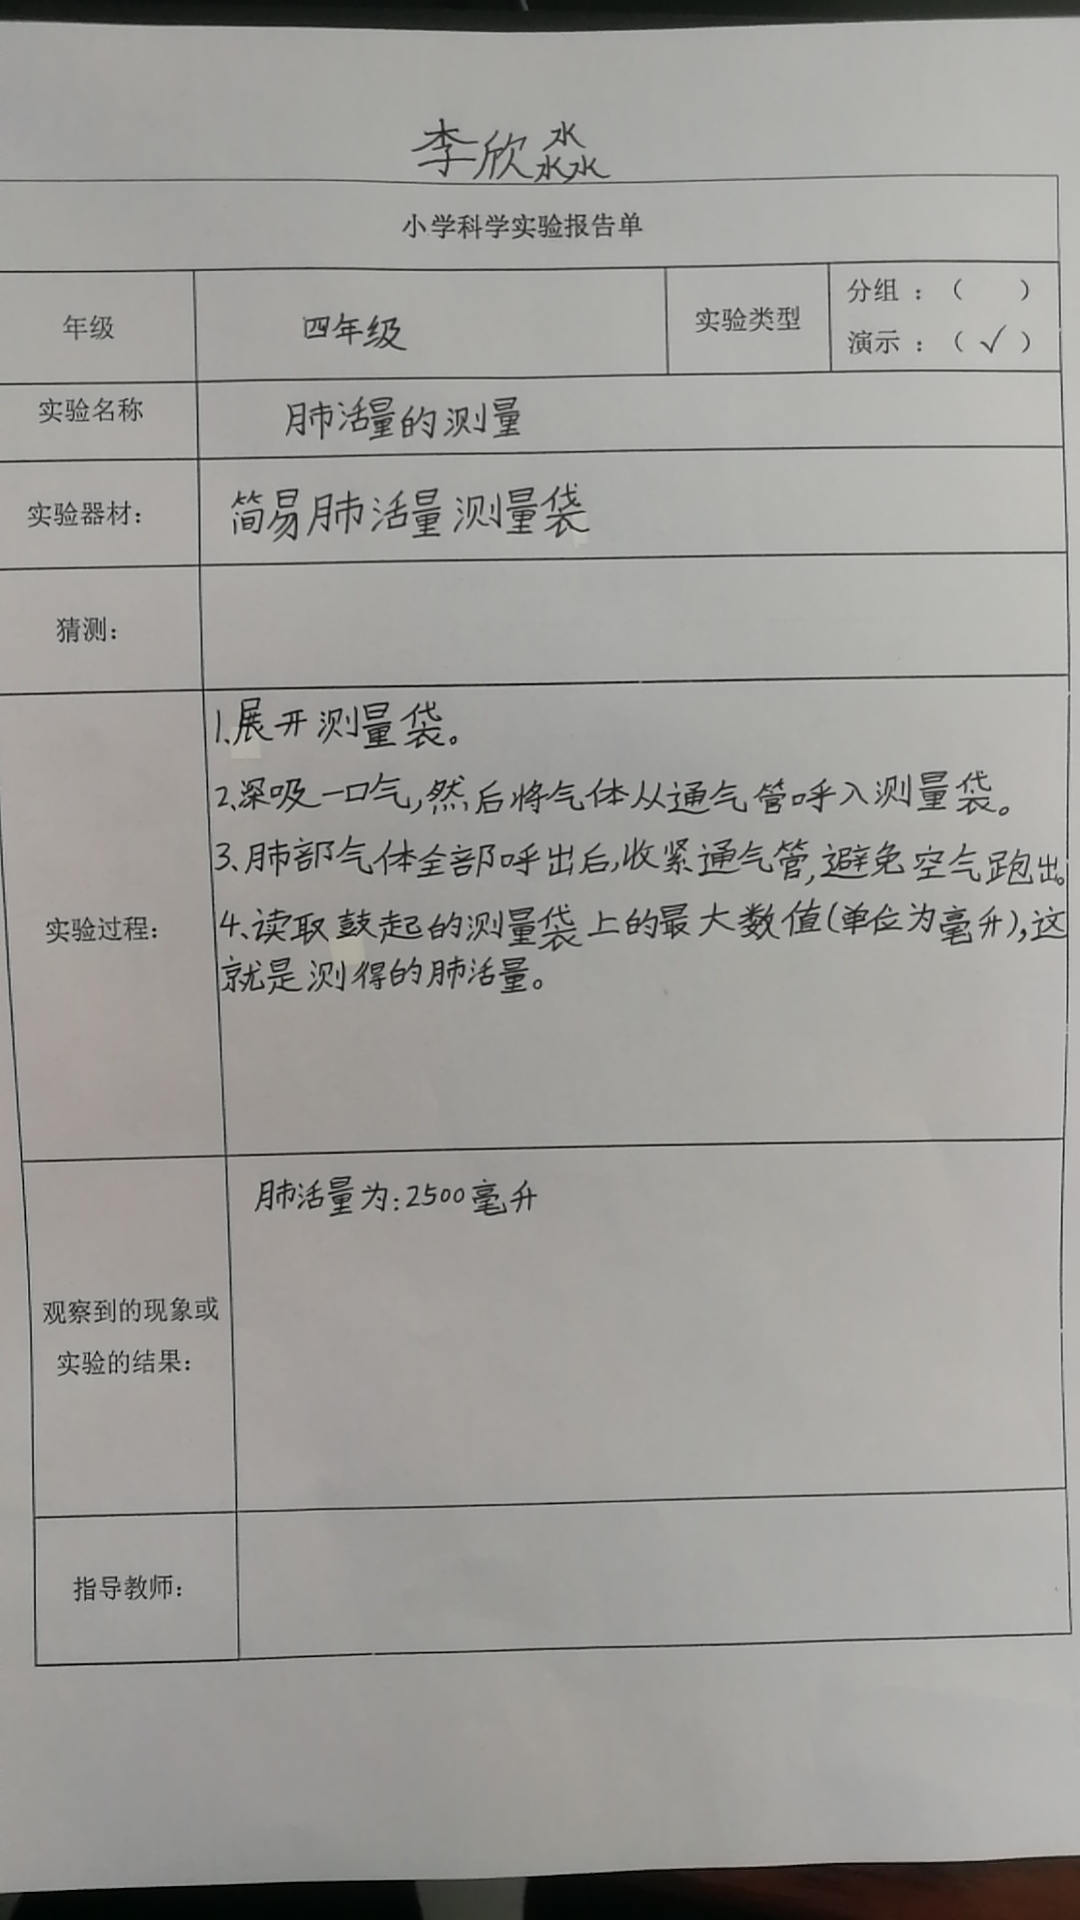 李欣淼
小学科学实验报告单
年级
四年级
实验类型
分组：（ ）
演示：（√）
实验名称
肺活量的测量
实验器材：
简易肺活量测量袋
猜测：
实验过程：
1、展开测量袋。
2、深吸一口气,然后将气体从通气管呼入测量袋。
3、肺部气体全部呼出后,收紧通气管,避免空气跑出。
4、读取鼓起的测量袋上的最大数值(单位为毫升),这
就是测得的肺活量。
观察到的现象或
实验的结果：
肺活量为:2500毫升
指导教师：